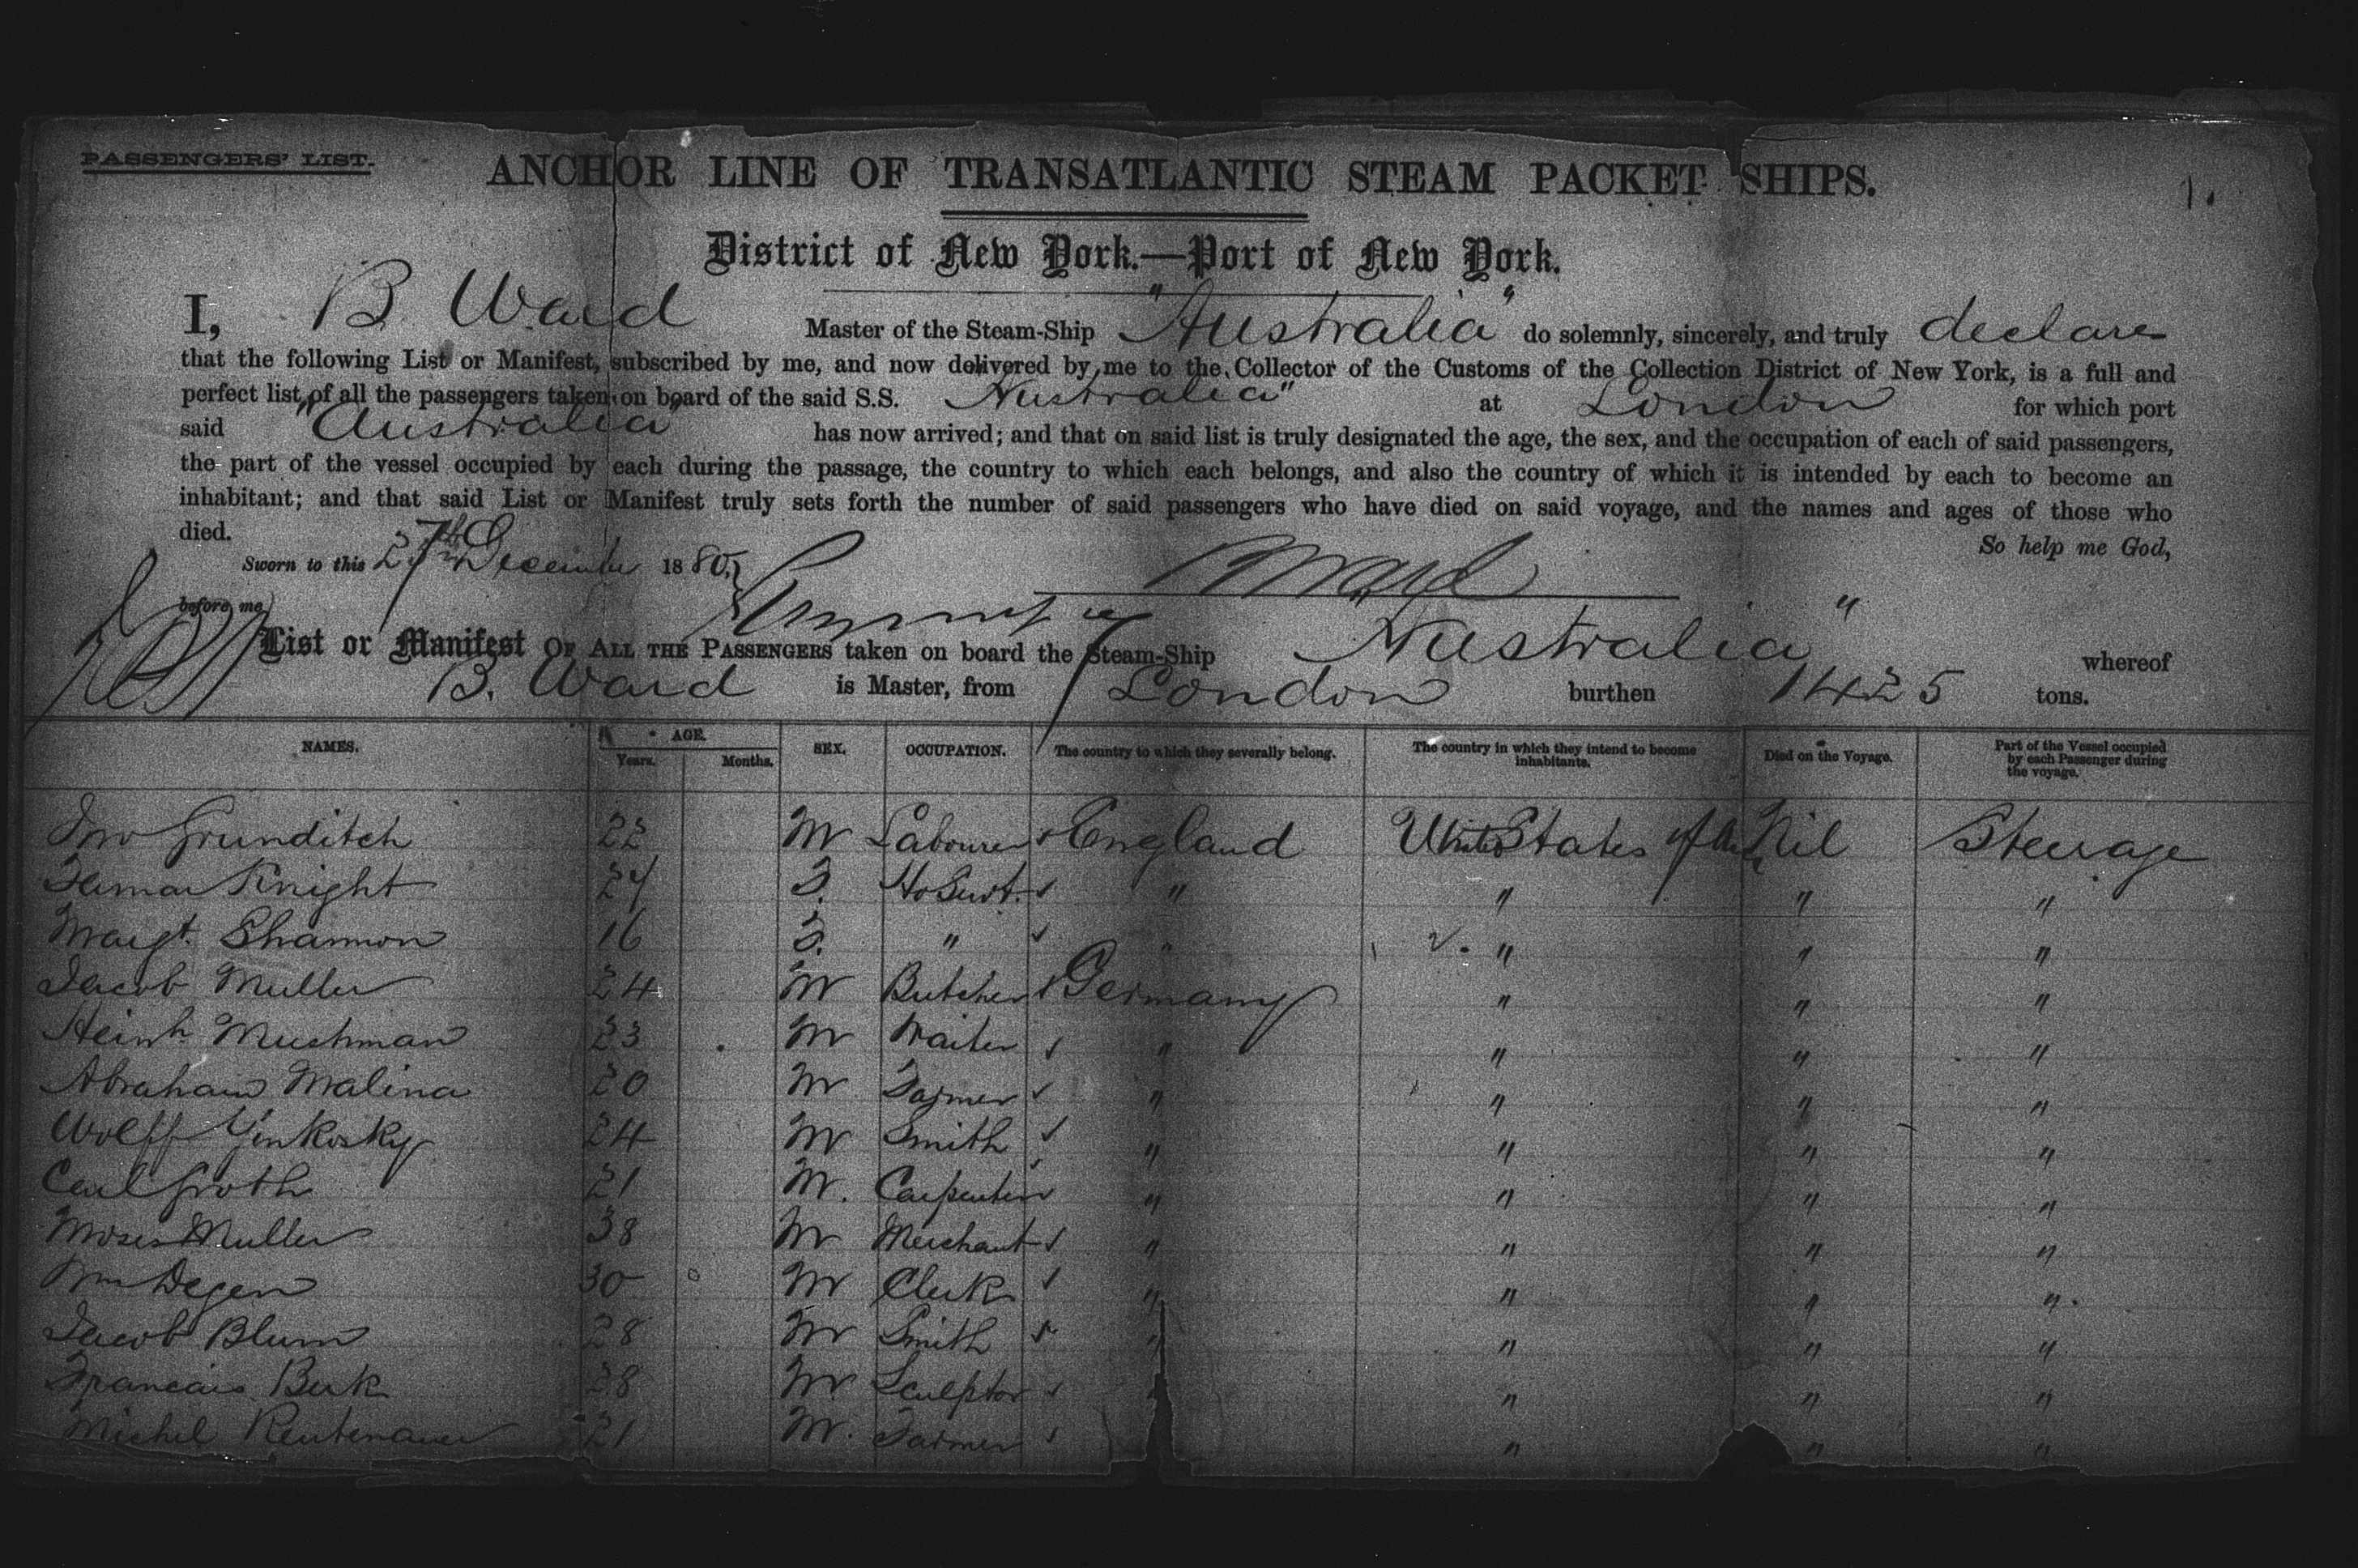 PASSENGERS' LIST.
ANCHOR LINE OF TRANSATLANTIC STEAM PACKET SHIPS.
1.
District of New York.—Port of New York.
I, B Ward Master of the Steam-Ship "Australia" do solemnly, sincerely, and truly declare
that the following List or Manifest, subscribed by me, and now delivered by me to the Collector of the Customs of the Collection District of New York, is a full and
perfect list of all the passengers taken on board of the said S.S. Australia" at London for which port
said "Australia" has now arrived; and that on said list is truly designated the age, the sex, and the occupation of each of said passengers,
the part of the vessel occupied by each during the passage, the country to which each belongs, and also the country of which it is intended by each to become an
inhabitant; and that said List or Manifest truly sets forth the number of said passengers who have died on said voyage, and the names and ages of those who
died.
So help me God,
Sworn to this 27th December 1880. BWard
before me
List or Manifest OF ALL THE PASSENGERS taken on board the Steam-Ship Australia" whereof
B. Ward is Master, from London burthen 1425 tons.
NAMES. AGE. Years. Months. SEX. OCCUPATION. The country to which they severally belong. The country in which they intend to become inhabitants. Died on the Voyage. Part of the Vessel occupied by each Passenger during the voyage.
Jno Grunditch 22 M Labourer England United States of Am Nil Steerage
Tamar Knight 24 F. Ho Servt. " " " "
Margt. Shannon 16 F. " " " " "
Jacob Muller 24 M Butcher Germany " " "
Heinh Mushman 23 M Waiter " " " "
Abraham Malina 20 M Farmer " " " "
Wolff Yinkosky 24 M Smith " " " "
Carl Groth 21 M. Carpenter " " " "
Moses Muller 38 M Merchant " " " "
Wm Degen 30 M Clerk " " " "
Jacob Blum 28 M Smith " " " "
Francais Berk 28 M Sculptor " " "
Michel Reutenauer 21 M. Farmer " " "